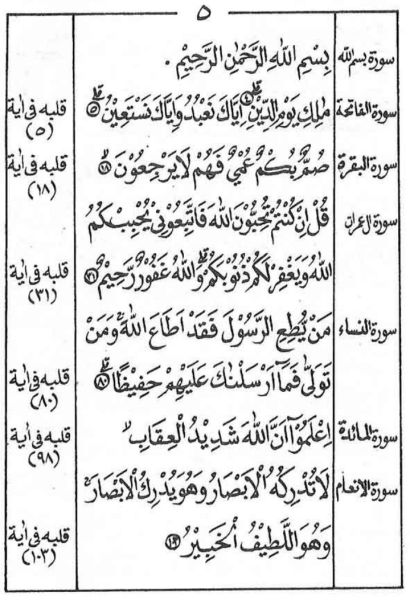 ٥
سورة بسم الله بِسْمِ اللّٰهِ الرَّحْمٰنِ الرَّحِيْمِ .
سورة الفاتحة مٰلِكِ يَوْمِ الدِّيْنِ ۗ ٤ اِيَّاكَ نَعْبُدُ وَاِيَّاكَ نَسْتَعِيْنُ ۗ ٥ قلبه فى اية (٥)
سورة البقرة صُمٌّ بُكْمٌ عُمْيٌ فَهُمْ لَا يَرْجِعُوْنَ ۙ ١٨ قلبه فى اية (١٨)
سورة ال عمران قُلْ اِنْ كُنْتُمْ تُحِبُّوْنَ اللّٰهَ فَاتَّبِعُوْنِيْ يُحْبِبْكُمُ
اللّٰهُ وَيَغْفِرْ لَكُمْ ذُنُوْبَكُمْ ۗ وَاللّٰهُ غَفُوْرٌ رَّحِيْمٌ ٣١ قلبه فى اية (٣١)
سورة النساء مَنْ يُّطِعِ الرَّسُوْلَ فَقَدْ اَطَاعَ اللّٰهَ ۚ وَمَنْ
تَوَلّٰى فَمَآ اَرْسَلْنٰكَ عَلَيْهِمْ حَفِيْظًا ۗ ٨٠ قلبه فى اية (٨٠)
سورة المائدة اِعْلَمُوْٓا اَنَّ اللّٰهَ شَدِيْدُ الْعِقَابِ ۙ قلبه فى اية (٩٨)
سورة الانعام لَا تُدْرِكُهُ الْاَبْصَارُ وَهُوَ يُدْرِكُ الْاَبْصَارَ ۚ
وَهُوَ اللَّطِيْفُ الْخَبِيْرُ ١٠٣ قلبه فى اية (١٠٣)